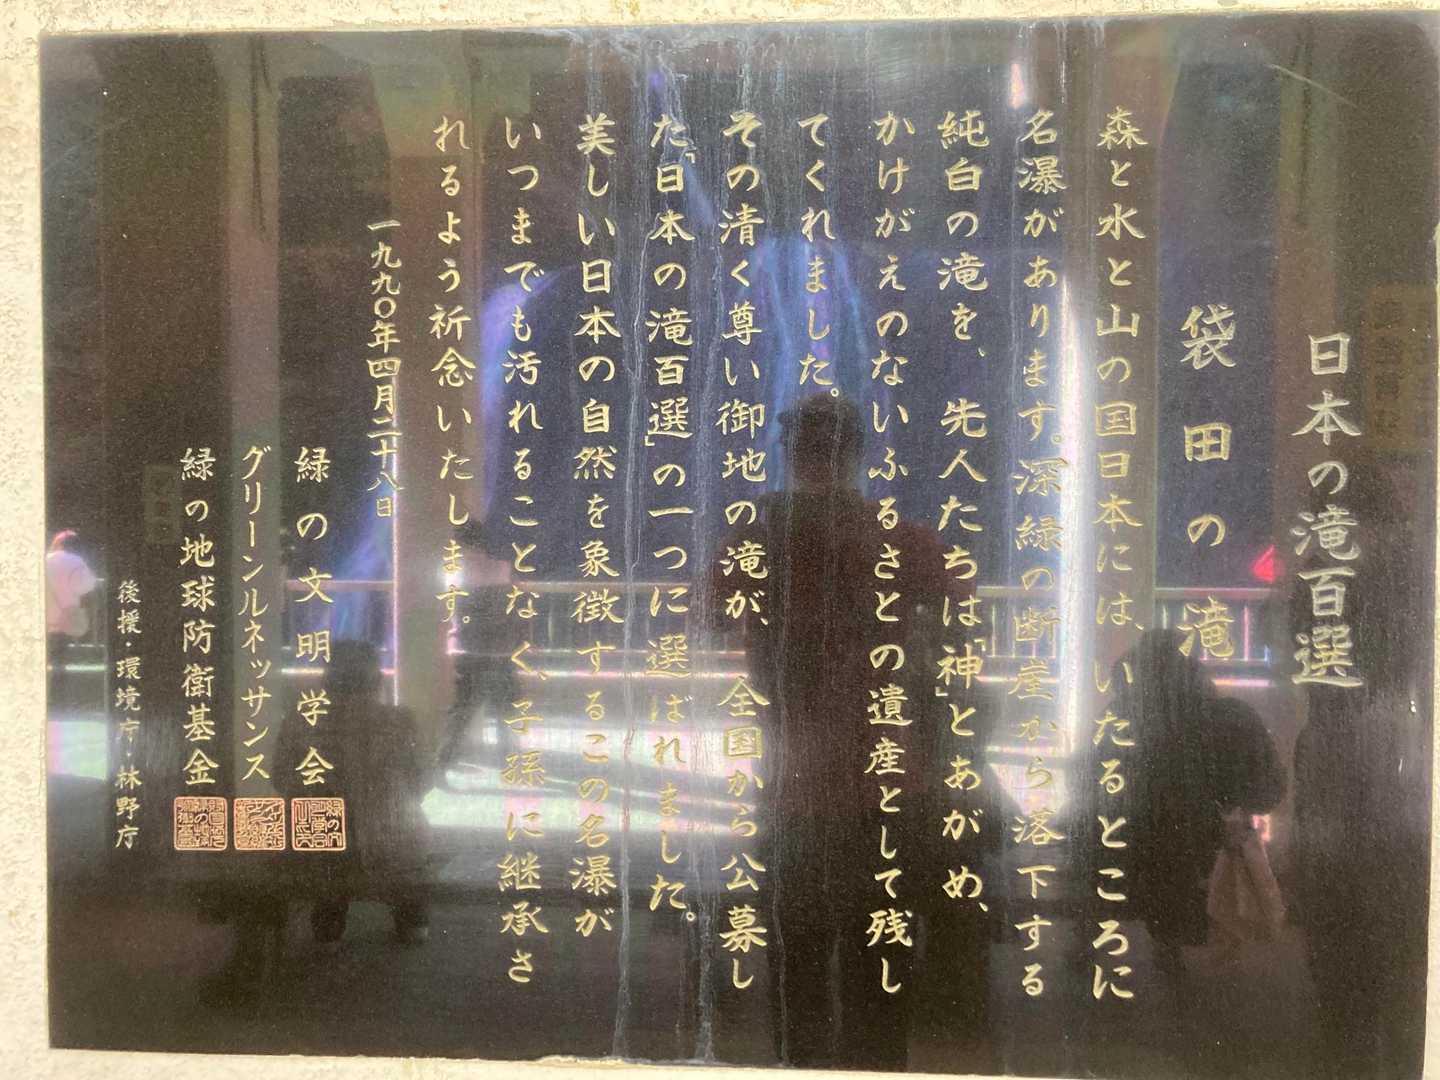 日本の滝百選
袋田の滝
森と水と山の国日本には、いたるところに
名瀑があります。深緑の断崖から落下する
純白の滝を、先人たちは「神」とあがめ、
かけがえのないふるさとの遺産として残し
てくれました。
その清く尊い御地の滝が、全国から公募し
た「日本の滝百選」の一つに選ばれました。
美しい日本の自然を象徴するこの名瀑が
いつまでも汚れることなく、子孫に継承さ
れるよう祈念いたします。
一九九〇年四月二十八日
緑の文明学会
グリーンルネッサンス
緑の地球防衛基金
後援・環境庁・林野庁